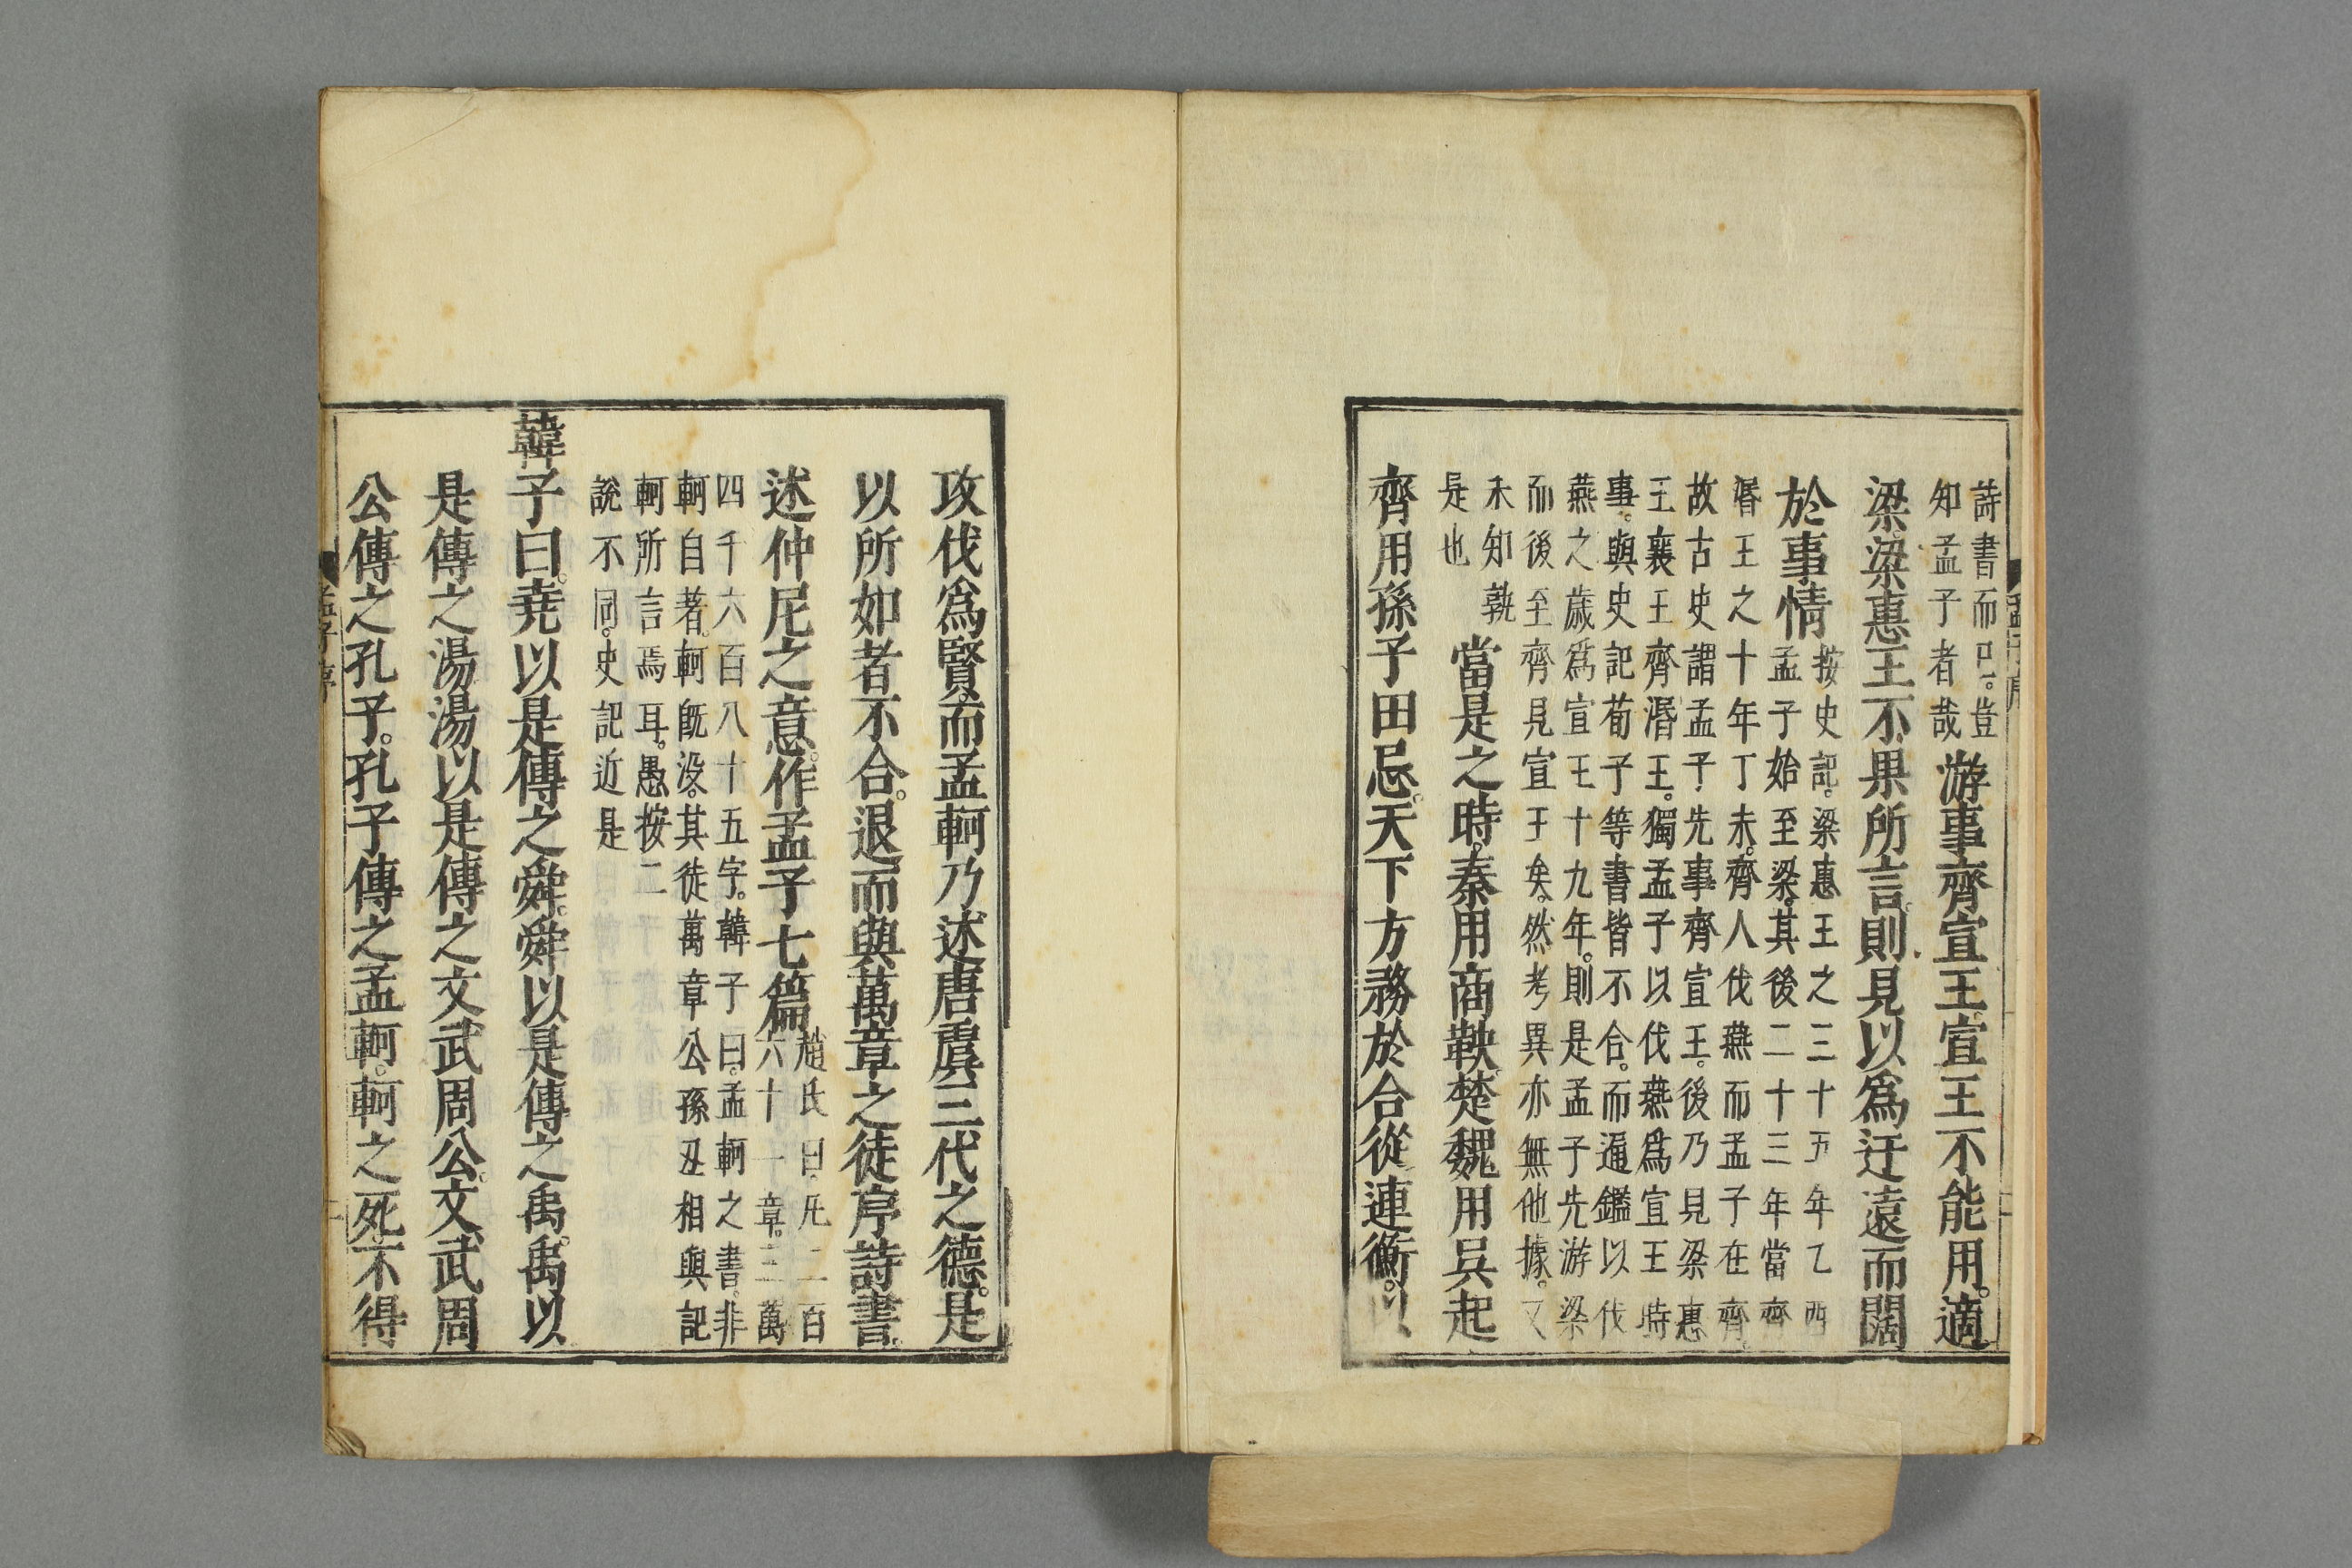 孟子序
詩書而已。豈
知孟子者哉
游事齊宣王宣王不能用。適
梁梁惠王不果所言。則見以爲迂遠而闊
於事情
按史記。梁惠王之三十五年乙酉
孟子始至梁。其後二十三年當齊
湣王之十年丁未。齊人伐燕而孟子在齊。
故古史謂孟子先事齊宣王。後乃見梁惠
王襄王齊湣王。獨孟子以伐燕爲宣王時
事。與史記荀子等書皆不合。而通鑑以伐
燕之歲爲宣王十九年。則是孟子先游梁
而後至齊見宣王矣。然考異亦無他據。又
未知孰
是也
當是之時。秦用商鞅楚魏用吳起
齊用孫子田忌。天下方務於合從連衡。以
攻伐爲賢。而孟軻乃述唐虞三代之德。是
以所如者不合。退而與萬章之徒序詩書。
述仲尼之意。作孟子七篇
趙氏曰。凡二百
六十一章。三萬
四千六百八十五字。韓子曰。孟軻之書。非
軻自著。軻旣沒。其徒萬章公孫丑相與記
軻所言焉耳。愚按二
說不同。史記近是
韓子曰。堯以是傳之舜。舜以是傳之禹。禹以
是傳之湯湯以是傳之文武周公。文武周
公傳之孔子。孔子傳之孟軻。軻之死。不得
孟子序